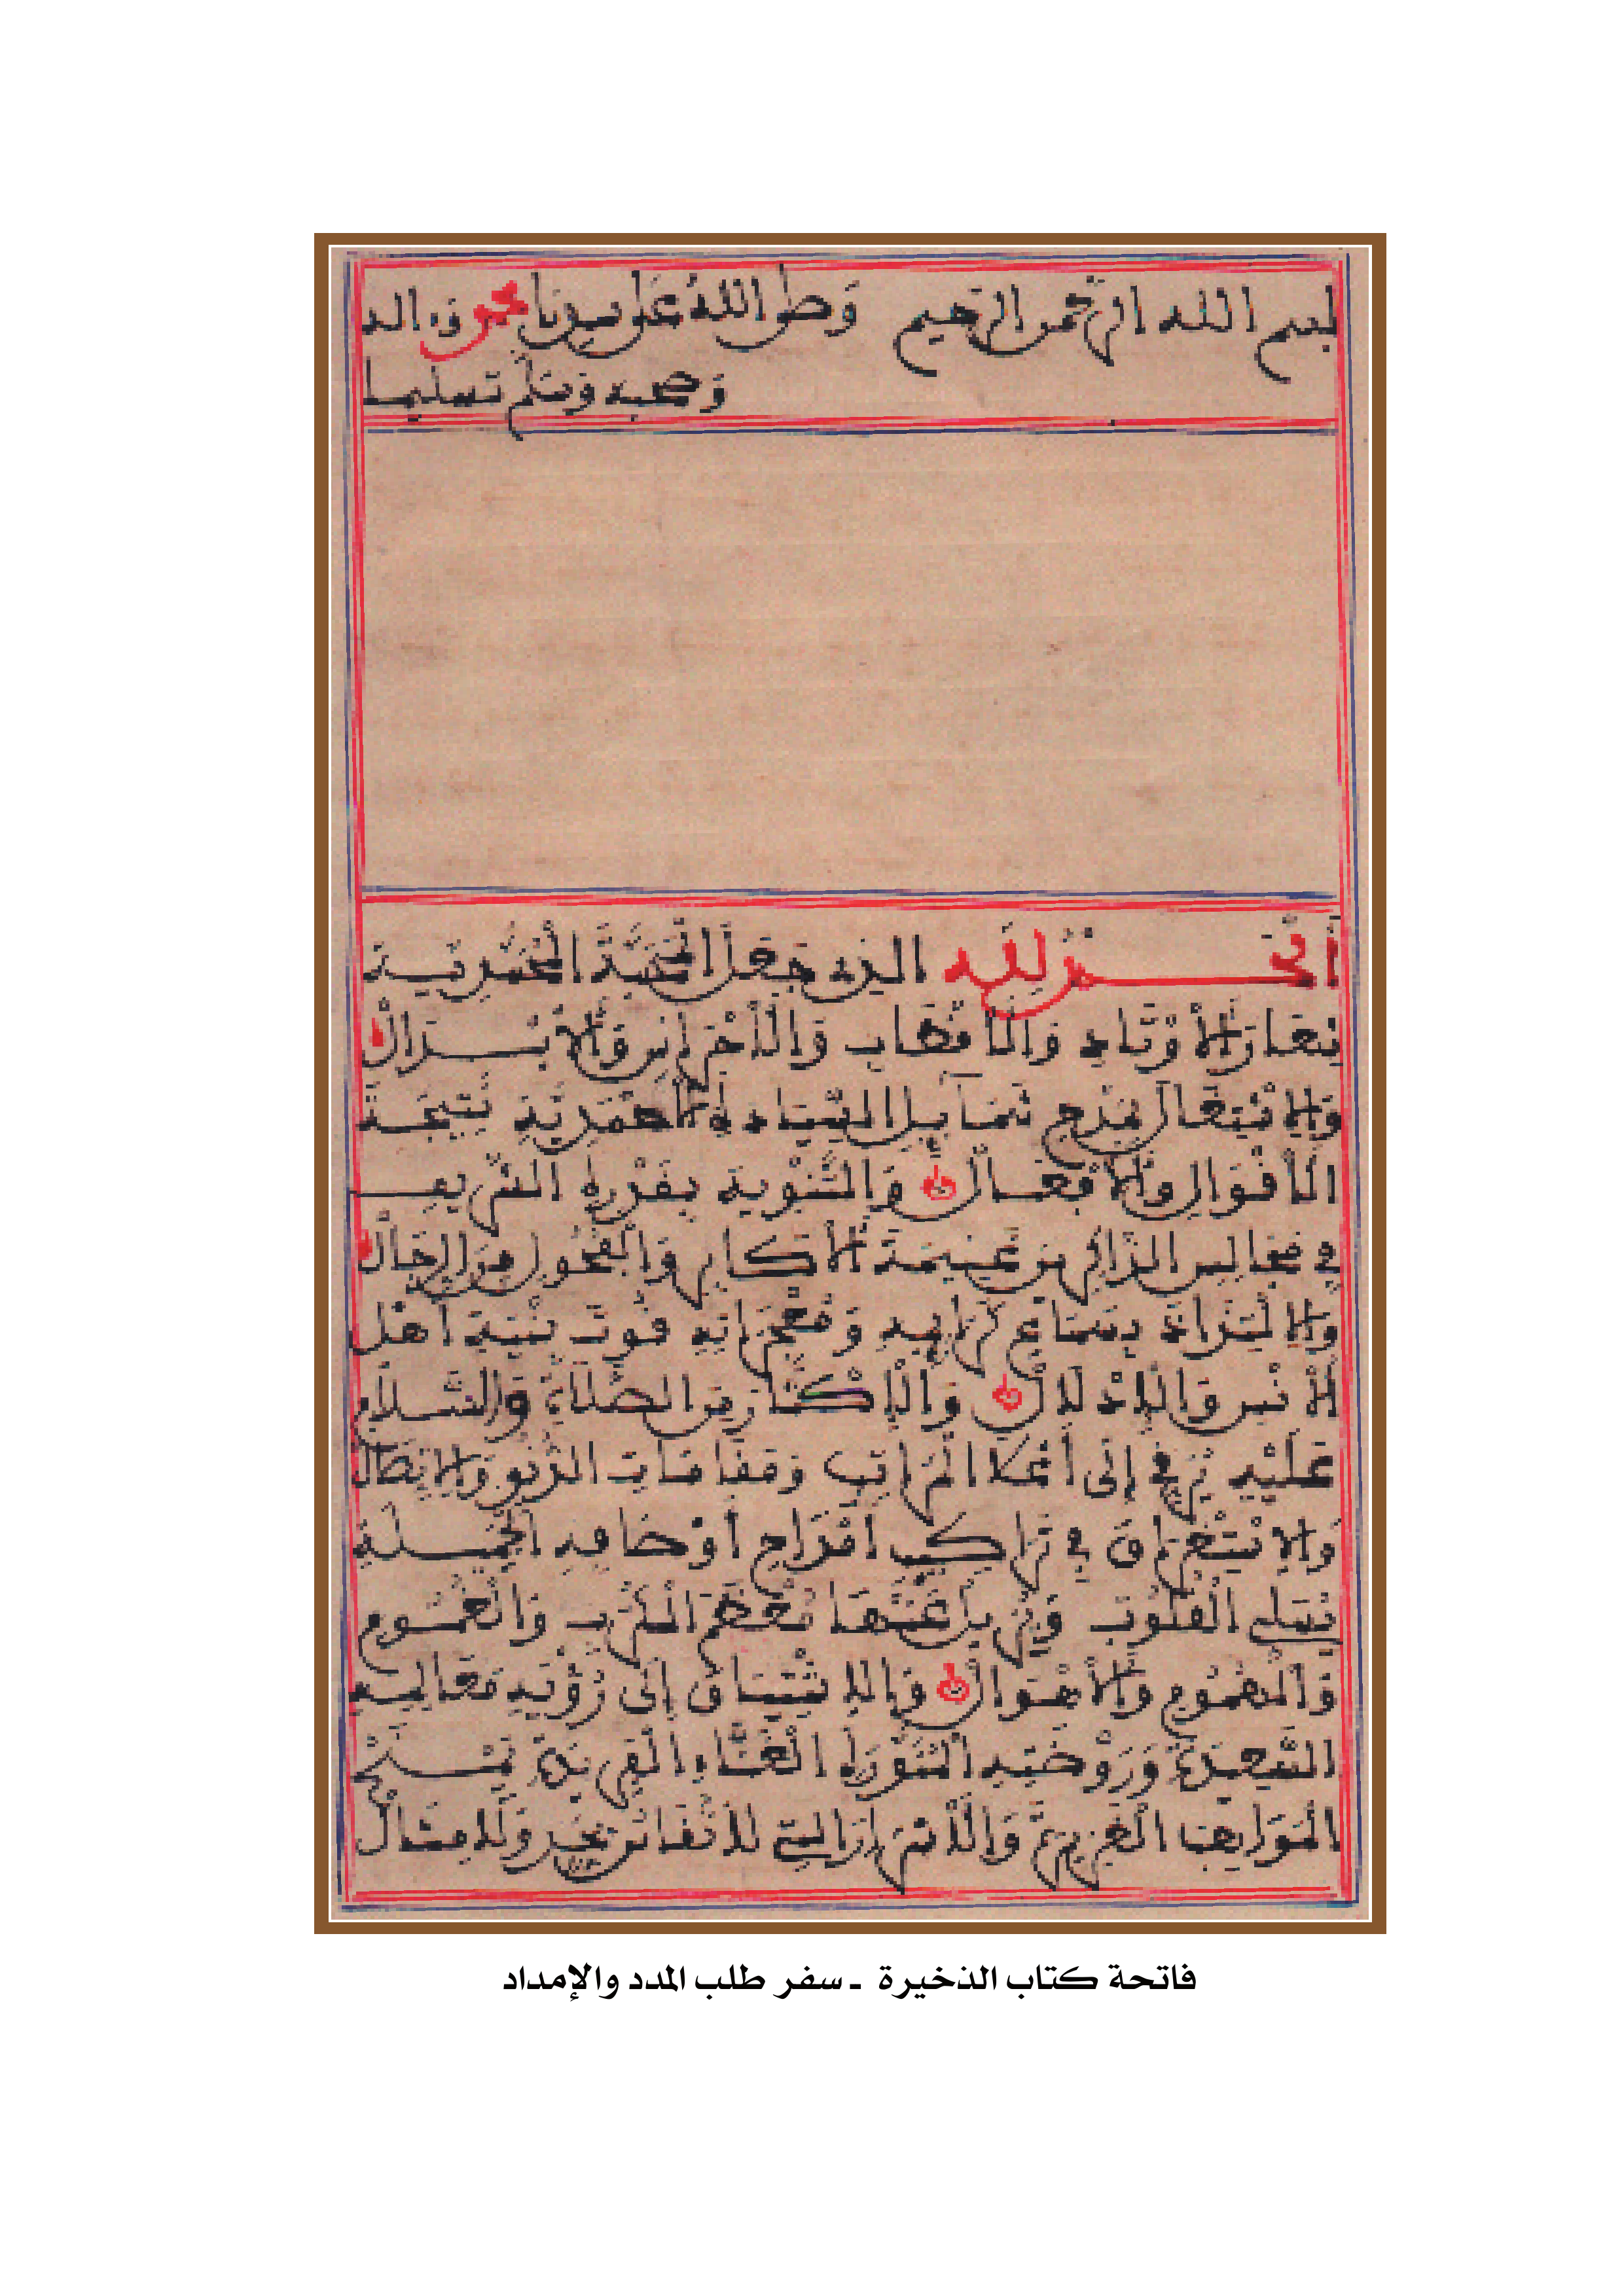 بسم الله الرحمن الرحيم وصلى الله على سيدنا محمد وءاله
وصحبه وسلم تسليما
أَلْحَمْدُ لِلَّهِ الذي جَعَلَ الْمَحَبَّةَ الْمُحَمَّدِيَّةَ
شِعَارَ الْأَوْتَادِ وَالْأَقْطَابِ وَالْأَجْرَاسِ وَالْأَبْدَالْ
وَالِاشْتِغَالَ بِمَدْحِ شَمَائِلِ السِّيَادَةِ الْأَحْمَدِيَّةِ نَتِيجَةَ
الْأَقْوَالِ وَالْأَفْعَالْ وَالتَّنْوِيهَ بِقَدْرِهِ الشَّرِيفِ
فِي مَجَالِسِ الذِّكْرِ مِنْ غَنِيمَةِ الْأَكَابِرِ وَالْفُحُولِ مِنَ الرِّجَالْ
وَالِالْتِذَاذَ بِسَمَاعِ كَرَامَاتِهِ وَمُعْجِزَاتِهِ قُوتَ بِنْيَةِ أَهْلِ
الْأُنْسِ وَالْإِدْلَالْ وَالْإِكْثَارَ مِنَ الصَّلَاةِ وَالسَّلَامِ
عَلَيْهِ يُرَقِّي إِلَى أَعْلَا الْمَرَاتِبِ وَمَقَامَاتِ الدُّنُوِّ وَالِاتِّصَالْ
وَالِاسْتِغْرَاقَ فِي تَرَاكِيبِ أَمْدَاحِ أَوْصَافِهِ الْجَمِيلَةِ
يُسَلِّي الْقُلُوبَ وَيُزِيلُ عَنْهَا مُعْظَمَ الْكُرَبِ وَالْغُمُومِ
وَالْهُمُومِ وَالْأَهْوَالْ وَالِاشْتِيَاقَ إِلَى رُؤْيَةِ مَعَالِمِهِ
السَّعِيدَةِ وَرَوْضَتِهِ الْمُنَوَّرَةِ الْغَنَّاءِ الْفَرِيدَةِ يَمْنَحُ
الْمَوَاهِبَ الْغَزِيرَةَ وَالْأَسْرَارَ التِي
فاتحة كتاب الذخيرة ـ سفر طلب المدد والإمداد